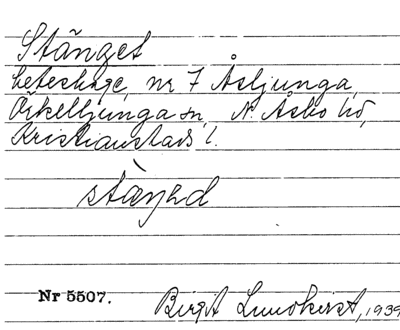 Stänget
beteshage, nr 7 Åsljunga,
Örkelljunga sn, N. Åsbo hd,
Kristianstads l.
Nr 5507.
Birgit Lundkvist, 1939